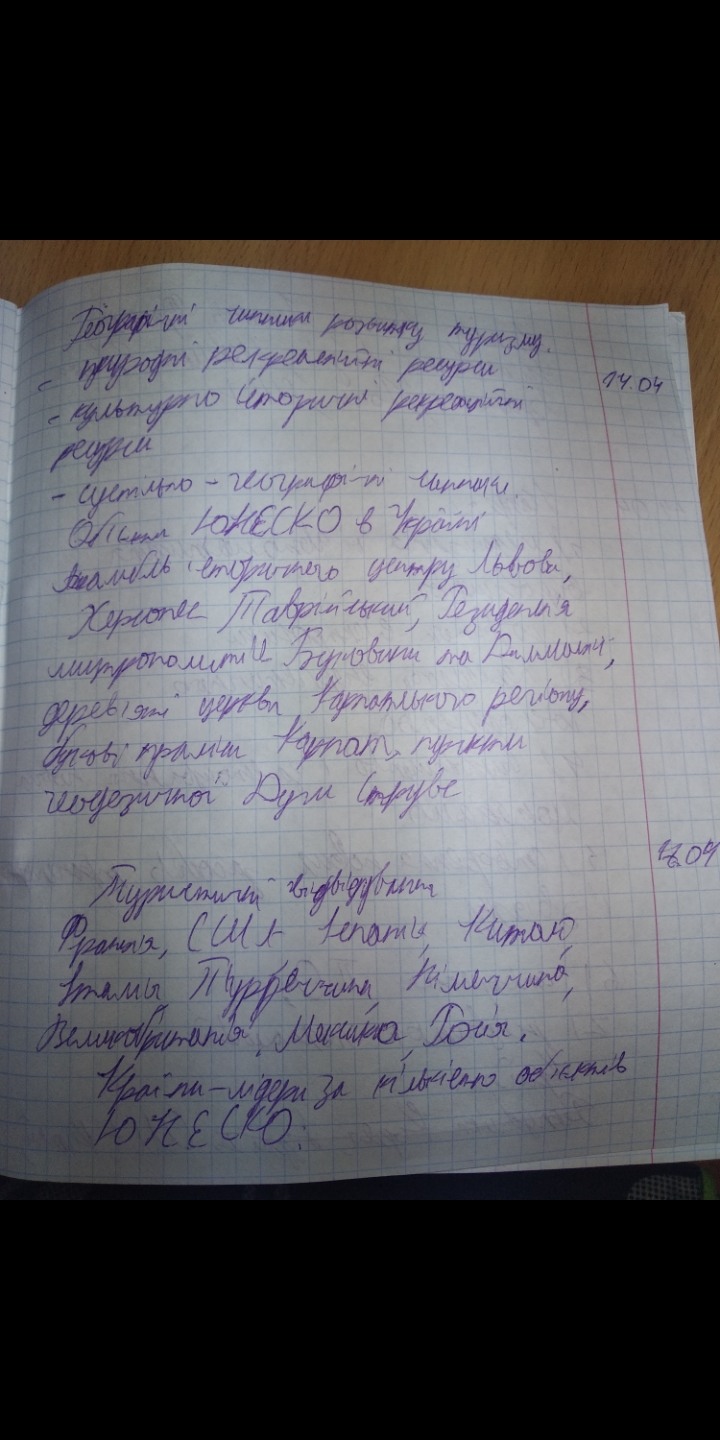 Географічні чинники розвитку туризму.
- природні рекреаційні ресурси
14.04
- культурно історичні рекреаційні
ресурси
- суспільно - географічні чинники.
Обєкти ЮНЕСКО в Україні
Ансамбль історичного центру Львова,
Херсонес Таврійський, Резиденція
митрополитів Буковини та Далмації,
деревяні церкви Карпатського регіону,
букові праліси Карпат, пункти
геодезичної Дуги Струве
Туристичні відвідування
Франція, США Іспанія, Китаю,
Італії, Туреччина, Німеччина,
Великобританія, Мексика,
Країни-лідери за кількістю обєктів
ЮНЕСКО: